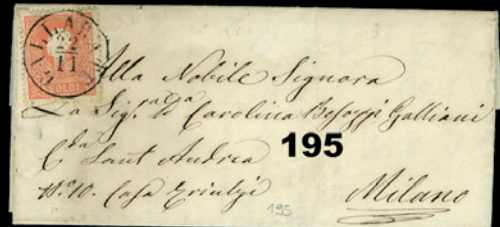 GALLARATE
22
11
SOLDI
Alla Nobile Signora
La Sig.ra Carolina Besozzi Galliani
C.da Sant Andrea
195
N.o 10. Casa Triulzi
Milano
195